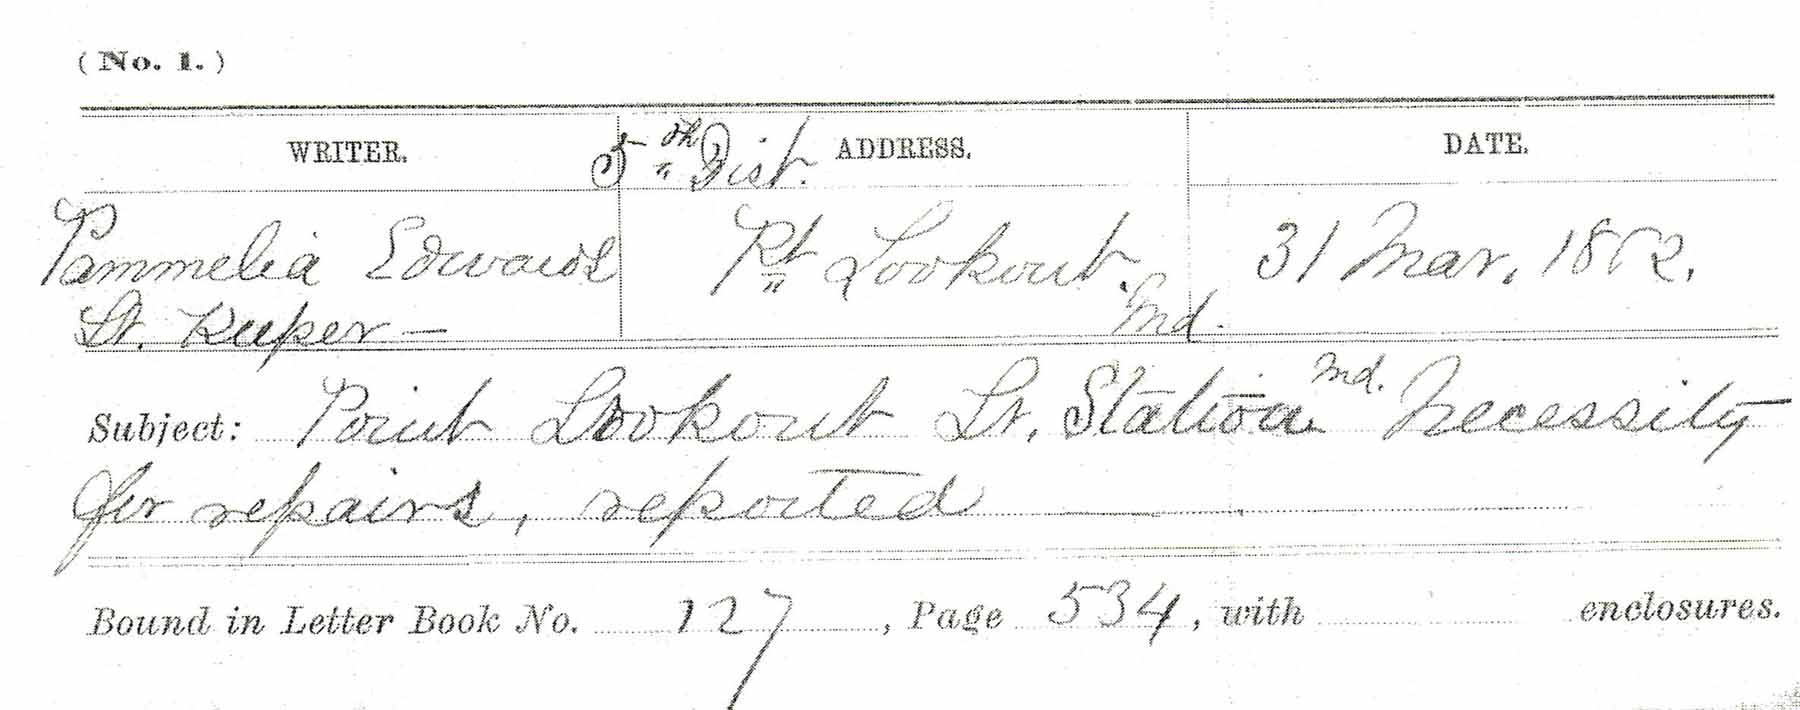 (No. 1.)
WRITER. 5th Dist. ADDRESS. DATE.
Pammelia Edwards Pt Lookout. 31 Mar. 1862.
Lt. Keeper — Md.
Subject: Point Lookout Lt. Station Md. Necessity
for repairs, reported —
Bound in Letter Book No. 127, Page 534, with enclosures.